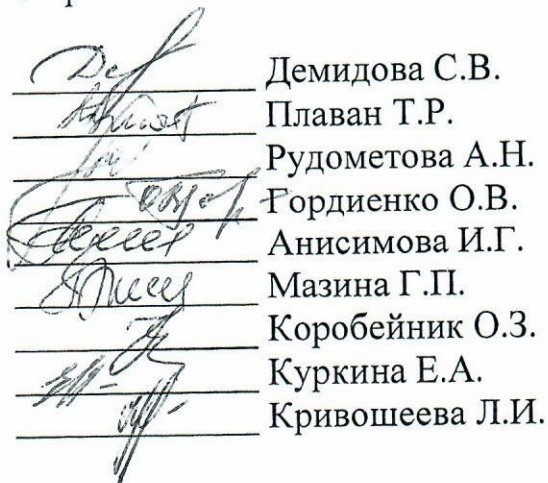 Демидова С.В.
Плаван Т.Р.
Рудометова А.Н.
Гордиенко О.В.
Анисимова И.Г.
Мазина Г.П.
Коробейник О.З.
Куркина Е.А.
Кривошеева Л.И.